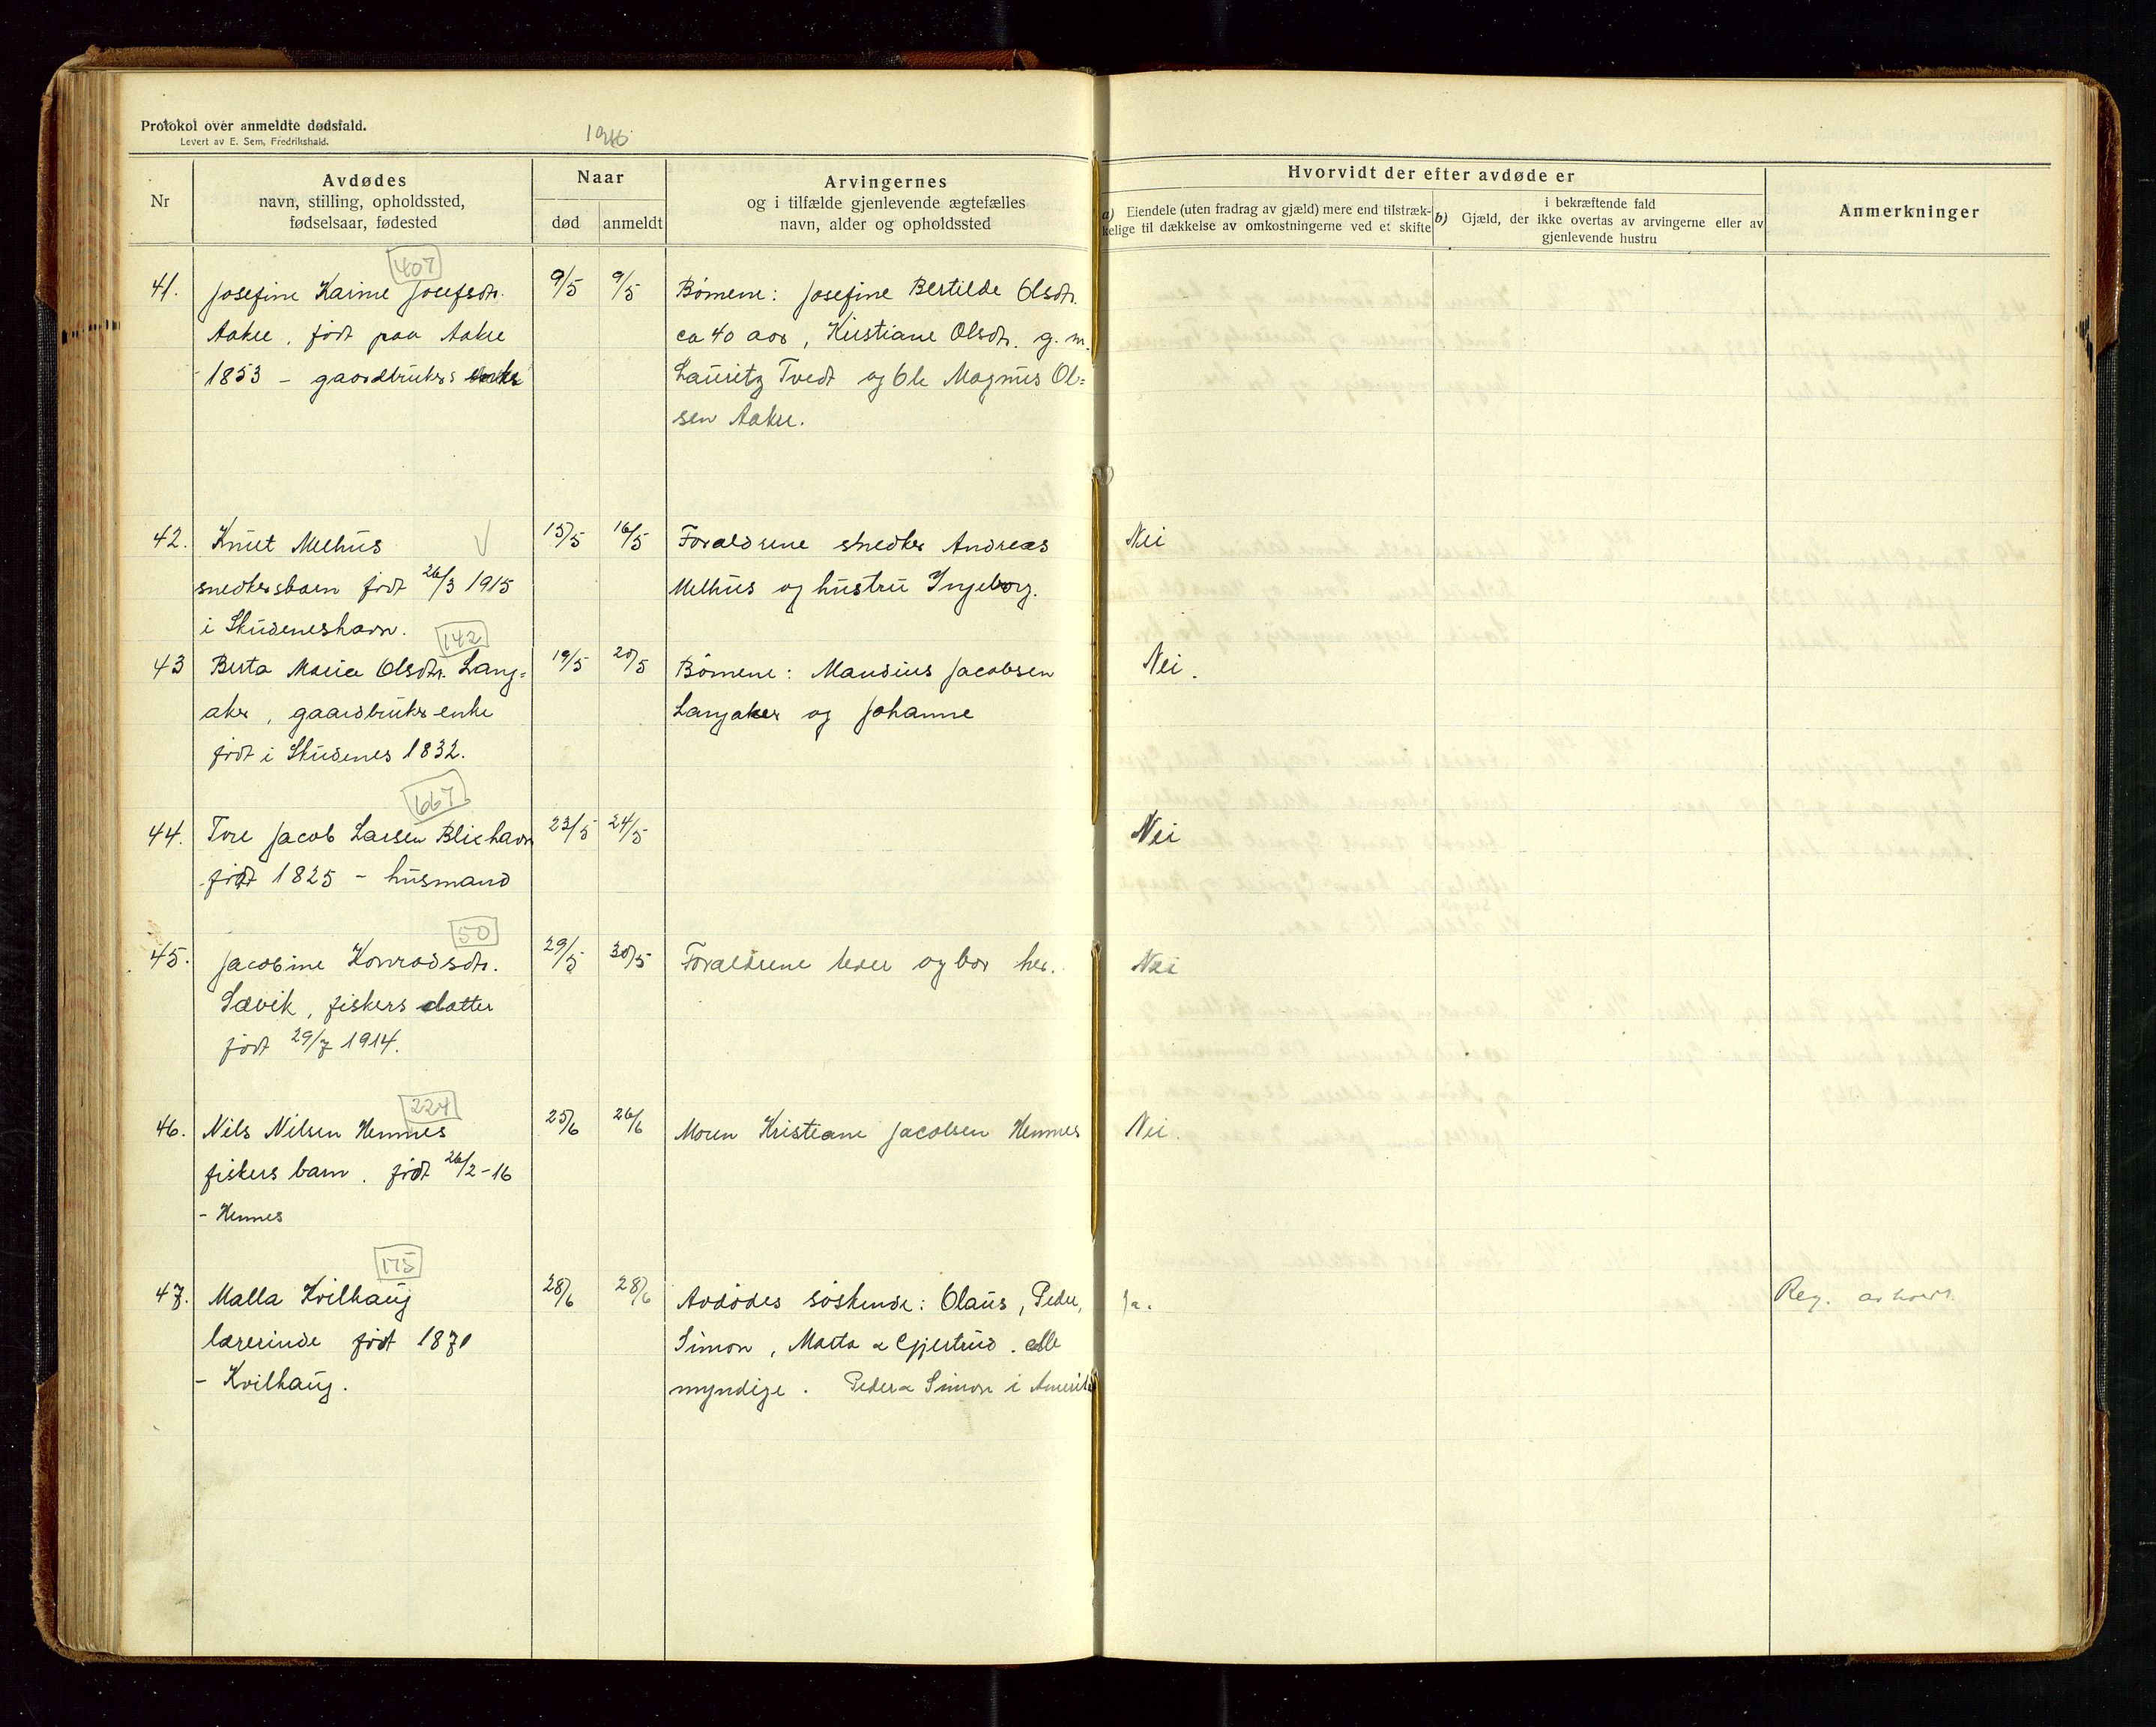 Protokol over anmeldte dødsfald.
Levert av E. Sem, Fredrikshald.
1916
Nr
Avdødes
navn, stilling, opholdssted,
fødselsaar, fødested
Naar
død
anmeldt
Arvingernes
og i tilfælde gjenlevende ægtefælles
navn, alder og opholdssted
Hvorvidt der efter avdøde er
a) Eiendele (uten fradrag av gjæld) mere end tilstræk-
kelige til dækkelse av omkostningerne ved et skifte
i bekræftende fald
b) Gjæld, der ikke overtas av arvingerne eller av
gjenlevende hustru
Anmerkninger
407
41. Josefine Karine Josefsdtr. 9/5 9/5 Børnene: Josefine Bertilde Olsdtr.
Aakre, født paa Aakre ca 40 aar, Kristiane Olsdtr. g. m.
1853 - gaardbrukers enke Lauritz Tvedt og Ole Magnus Ol=
sen Aakre.
42. Knut Melhus 15/5 16/5 Forældrene snedker Andreas Nei
snedkersbarn født 26/3 1915 Melhus og hustru Ingeborg.
i Skudeneshavn.
142
43 Berta Maria Olsdtr. Lang= 19/5 20/5 Børnene: Maudius Jacobsen Nei.
aker, gaardbruker-enke Langaker og Johanne
født i Skudenes 1832.
667
44. Tore Jacob Larsen Blikhavn 23/5 24/5 Nei
født 1825 - husmand
50
45. Jacobine Konradsdtr. 29/5 30/5 Forældrene lever og bor her. Nei
Sævik, fiskers datter
født 29/7 1914.
224
46. Nils Nilsen Hemnes 25/6 26/6 Moren Kristiane Jacobsen Hemnes Nei.
fiskers barn. født 26/2-16
- Hemnes
175
47. Malla Kvilhaug 28/6 28/6 Avdødes søskende: Olaus, Peder, Ja. Reg.
lærerinde født 1871 Simon, Marta & Gjertrud. alle
- Kvilhaug. myndige. Peder & Simon i Amerika